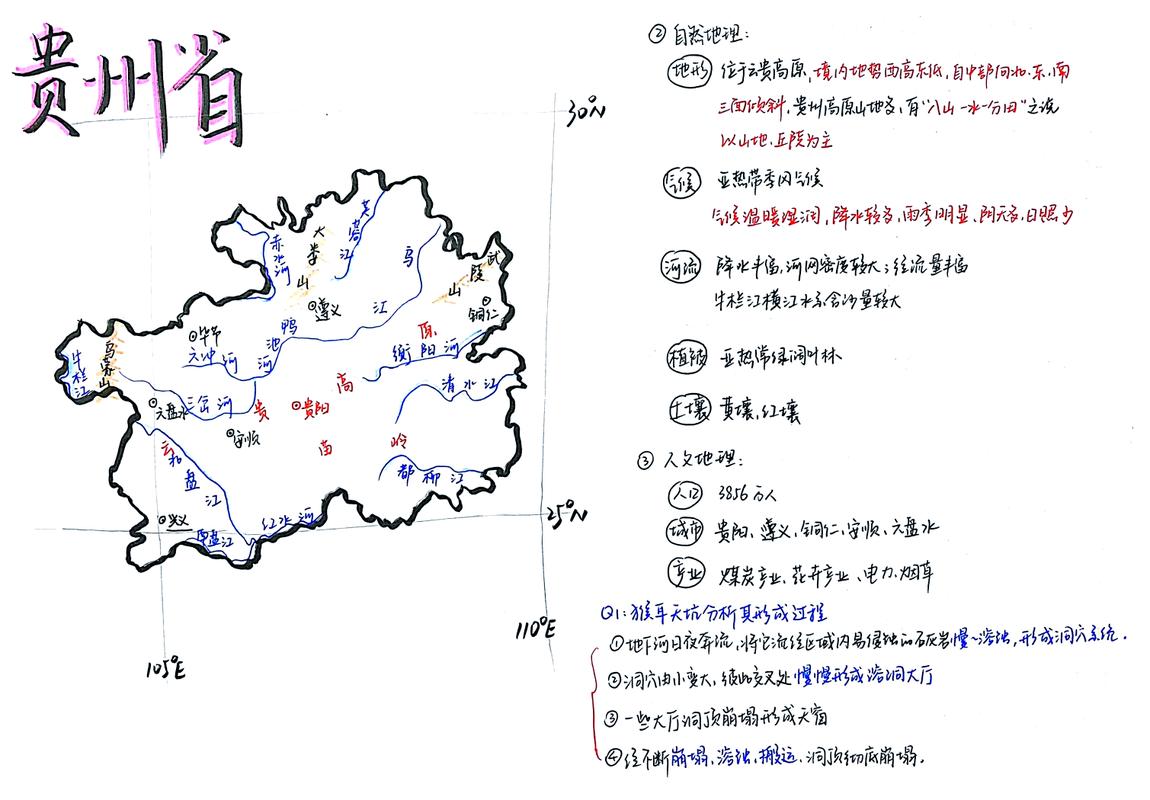 贵州省
30°N
大娄山
芙蓉江
赤水河
乌江
武陵山
遵义
铜仁
毕节
鸭池河
六冲河
衡阳河
乌蒙山
牛栏江
清水江
六盘水
三岔河
贵阳
安顺
云贵高原
南岭
都柳江
北盘江
25°N
兴义
红水河
南盘江
110°E
105°E
②自然地理:
地形 位于云贵高原,境内地势西高东低,自中部向北、东、南
三面倾斜,贵州高原山地多,有"八山一水一分田"之说
以山地、丘陵为主
气候 亚热带季风气候
气候温暖湿润,降水较多,雨季明显、阴天多,日照少
河流 降水丰富,河网密度较大;径流量丰富
牛栏江横江水系含沙量较大
植被 亚热带常绿阔叶林
土壤 黄壤,红壤
③人文地理:
人口 3856万人
城市 贵阳、遵义,铜仁、安顺、六盘水
产业 煤炭产业、花卉产业、电力、烟草
Q1:猴耳天坑分析其形成过程
①地下河日夜奔流,将它流经区域内易侵蚀的石灰岩慢~溶蚀,形成洞穴系统.
②洞穴由小变大,彼此交叉处慢慢形成溶洞大厅
③一些大厅洞顶崩塌形成天窗
④经不断崩塌、溶蚀,搬运,洞顶彻底崩塌.